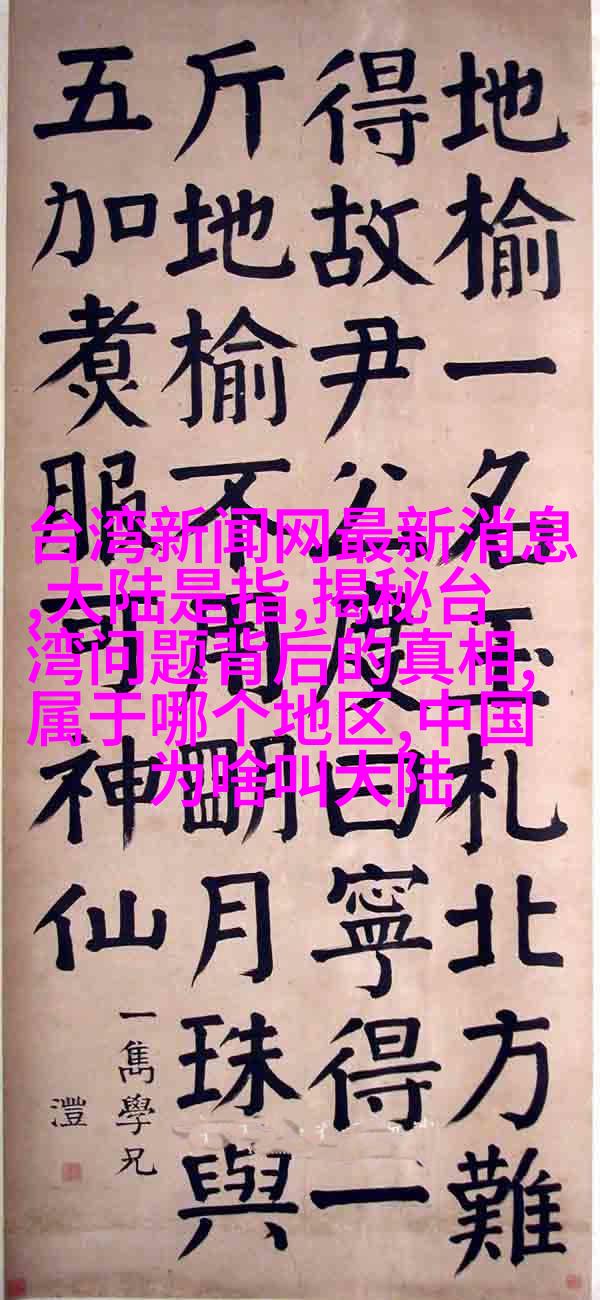 地榆一名玉札北方難
得故尹公度曰寧得一
斤地榆不用朙月珠與
五加煑服可神仙
一雋學兄
澧
台湾新闻网最新消息
,大陆是指,揭秘台
湾问题背后的真相,
属于哪个地区,中国
为啥叫大陆